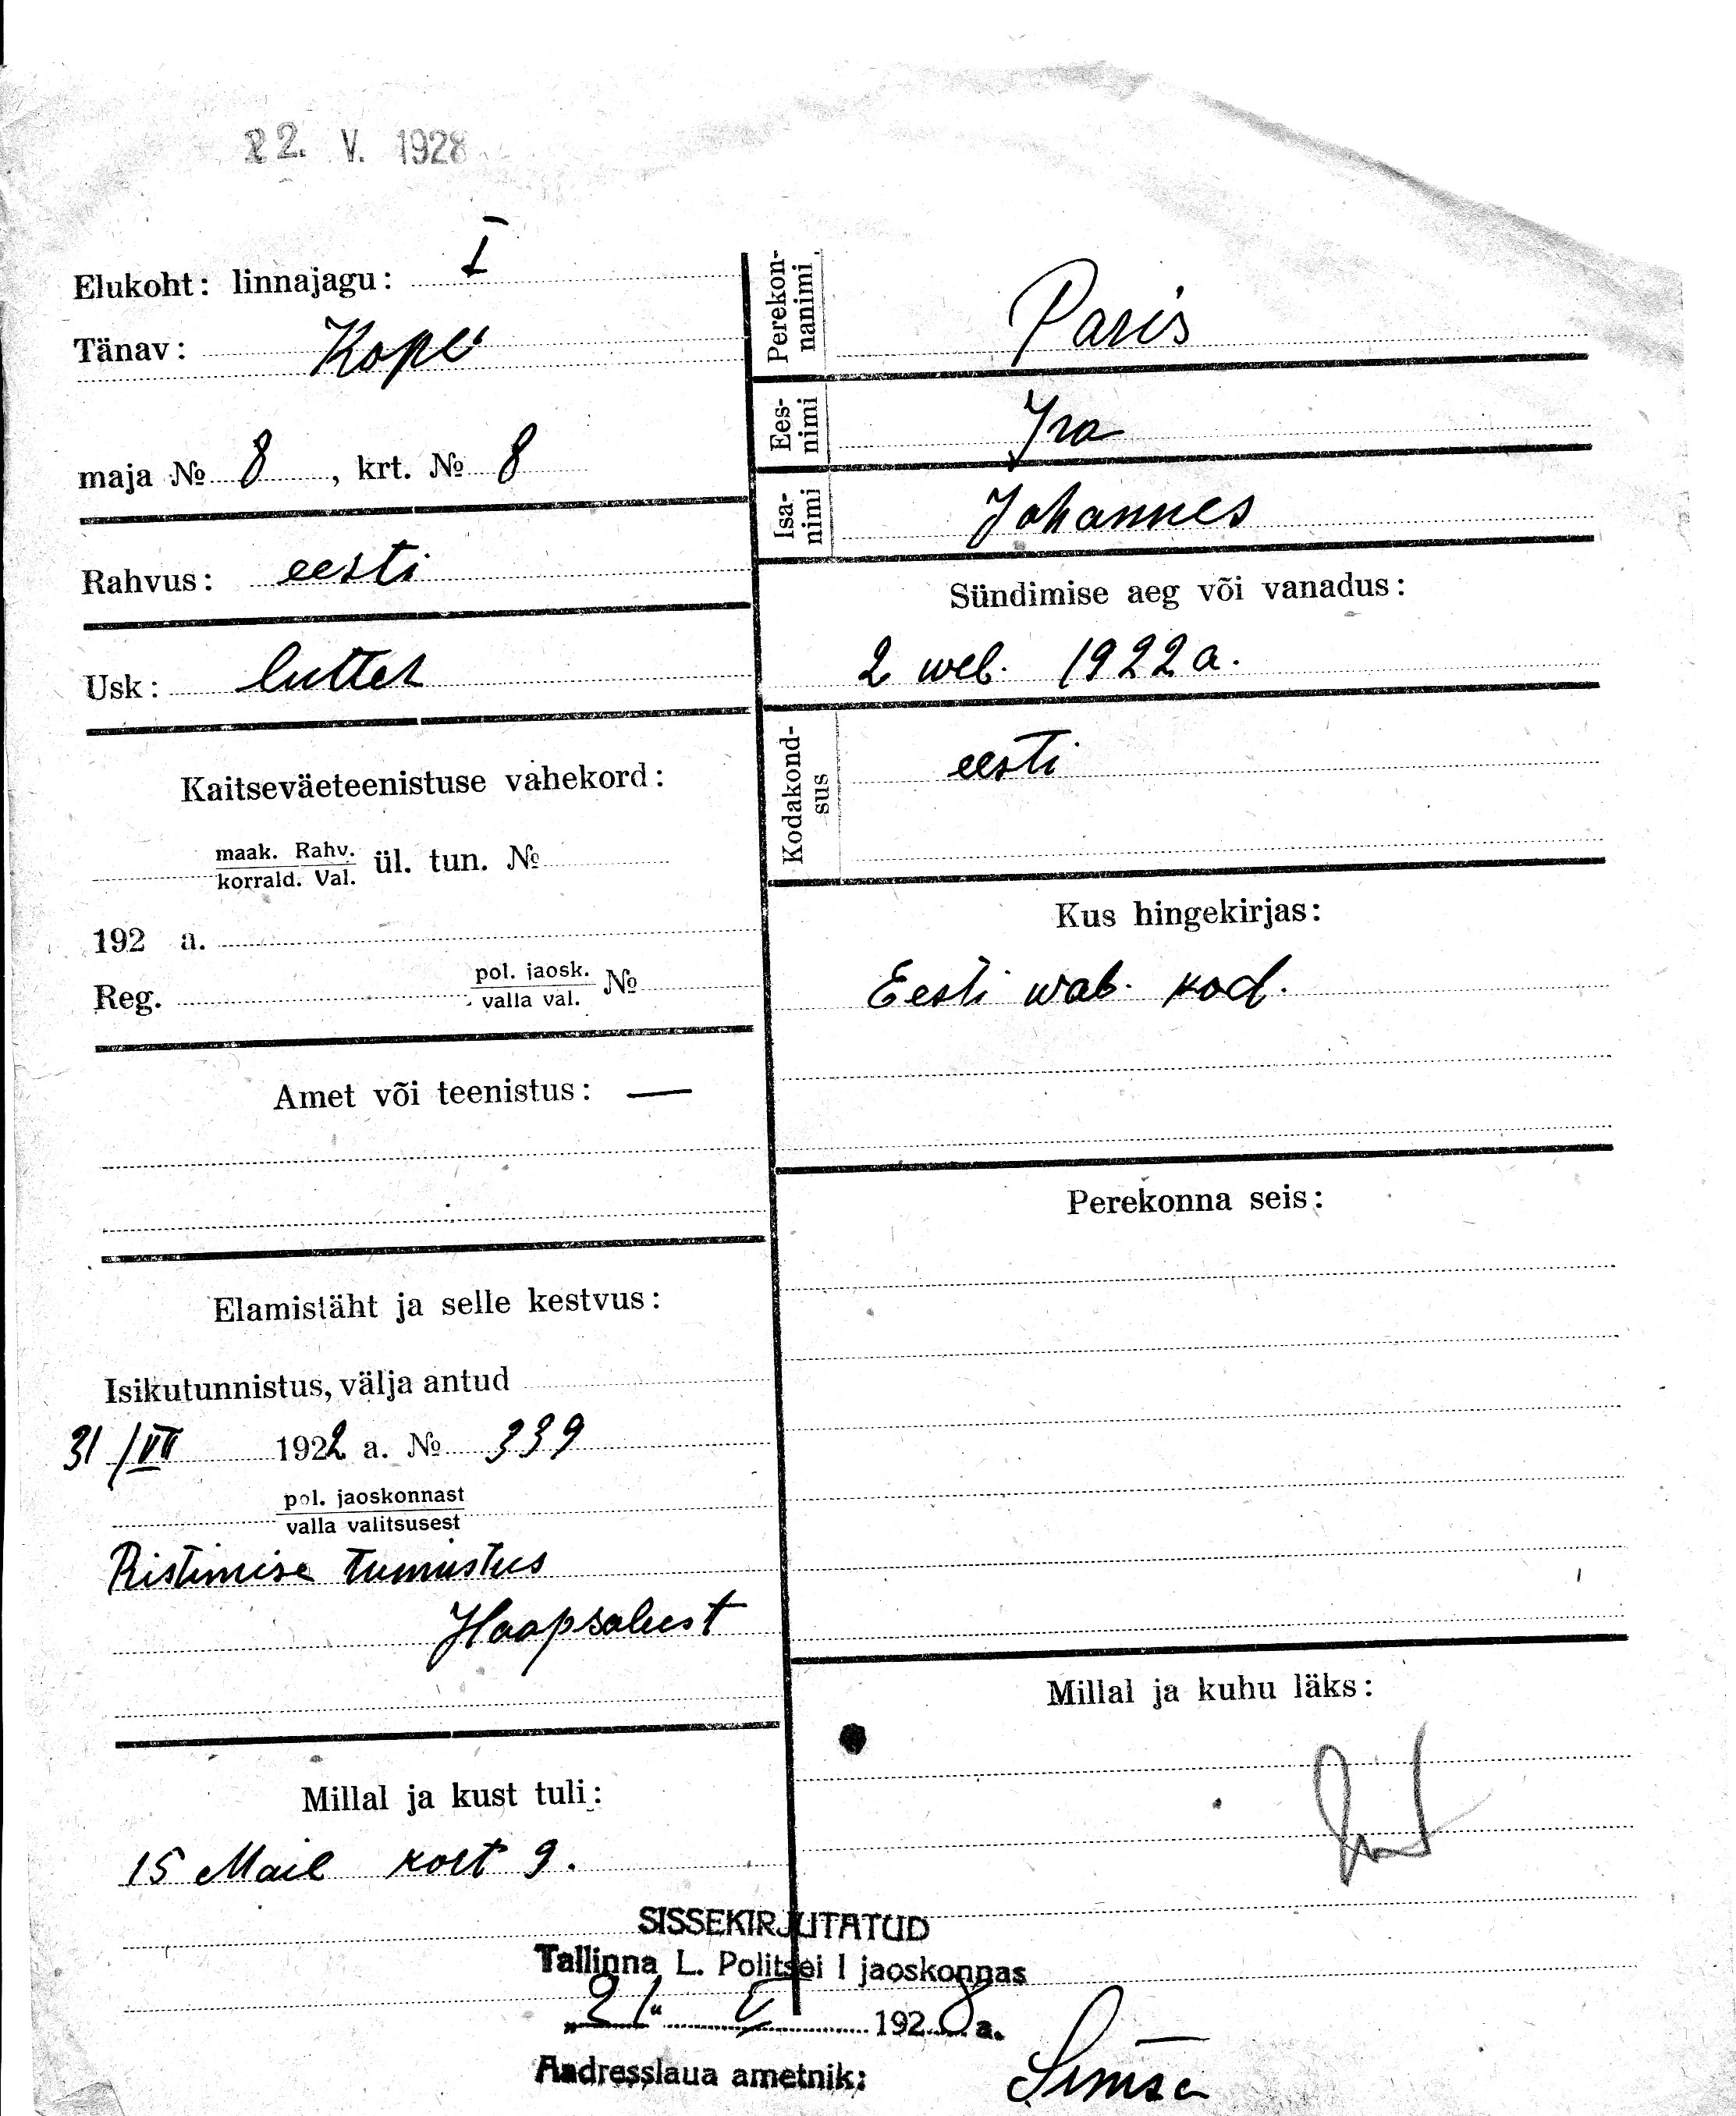 22. V. 1928
Elukoht: linnajagu: I
Tänav: Kopli
maja № 8, krt. № 8
Rahvus: eesti
Usk: lutter
Kaitseväeteenistuse vahekord:
maak. Rahv.
korrald. Val. ül. tun. №
192 a.
Reg. pol. jaosk.
valla val. №
Amet või teenistus: —
Elamistäht ja selle kestvus:
Isikutunnistus, välja antud
31/VII 1922 a. № 339
pol. jaoskonnast
valla valitsusest
Ristimise tunnistus
Haapsalust
Millal ja kust tuli:
15 Mail kort 9.
Perekon-
nanimi
Paris
Ees-
nimi
Ira
Isa-
nimi
Johannes
Sündimise aeg või vanadus:
2 web. 1922 a.
Kodakond-
sus
eesti
Kus hingekirjas:
Eesti wab. kod.
Perekonna seis:
Millal ja kuhu läks:
SISSEKIRJUTATUD
Tallinna L. Politsei I jaoskonnas
„21" V 1928 a.
Aadresslaua ametnik: